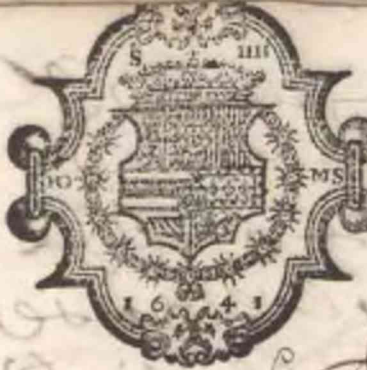 S IIII
IO MS
1 6 4 1